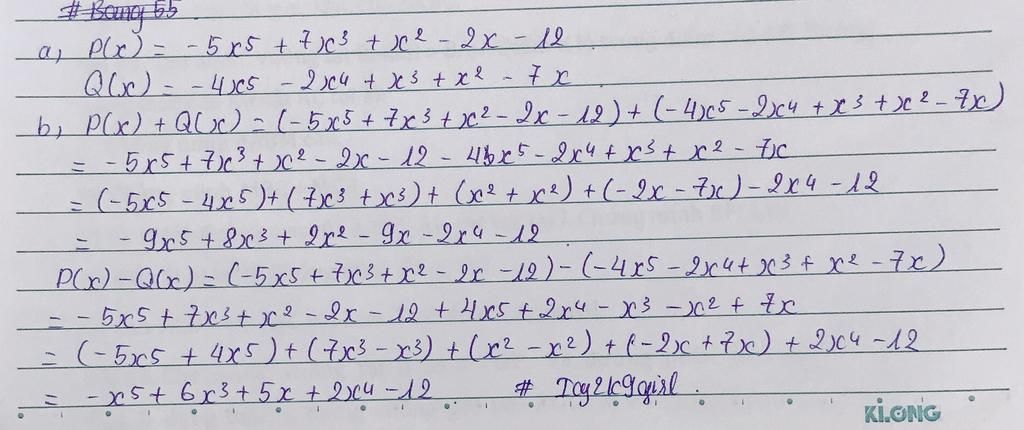 # Bang 55
a, P(x) = -5x⁵ + 7x³ + x² - 2x - 12
Q(x) = -4x⁵ - 2x⁴ + x³ + x² - 7x
b, P(x) + Q(x) = (-5x⁵ + 7x³ + x² - 2x - 12) + (-4x⁵ - 2x⁴ + x³ + x² - 7x)
= -5x⁵ + 7x³ + x² - 2x - 12 - 4x⁵ - 2x⁴ + x³ + x² - 7x
= (-5x⁵ - 4x⁵) + (7x³ + x³) + (x² + x²) + (-2x - 7x) - 2x⁴ - 12
= -9x⁵ + 8x³ + 2x² - 9x - 2x⁴ - 12
P(x) - Q(x) = (-5x⁵ + 7x³ + x² - 2x - 12) - (-4x⁵ - 2x⁴ + x³ + x² - 7x)
= -5x⁵ + 7x³ + x² - 2x - 12 + 4x⁵ + 2x⁴ - x³ - x² + 7x
= (-5x⁵ + 4x⁵) + (7x³ - x³) + (x² - x²) + (-2x + 7x) + 2x⁴ - 12
= -x⁵ + 6x³ + 5x + 2x⁴ - 12 # Icy2k9girl.
KLONG